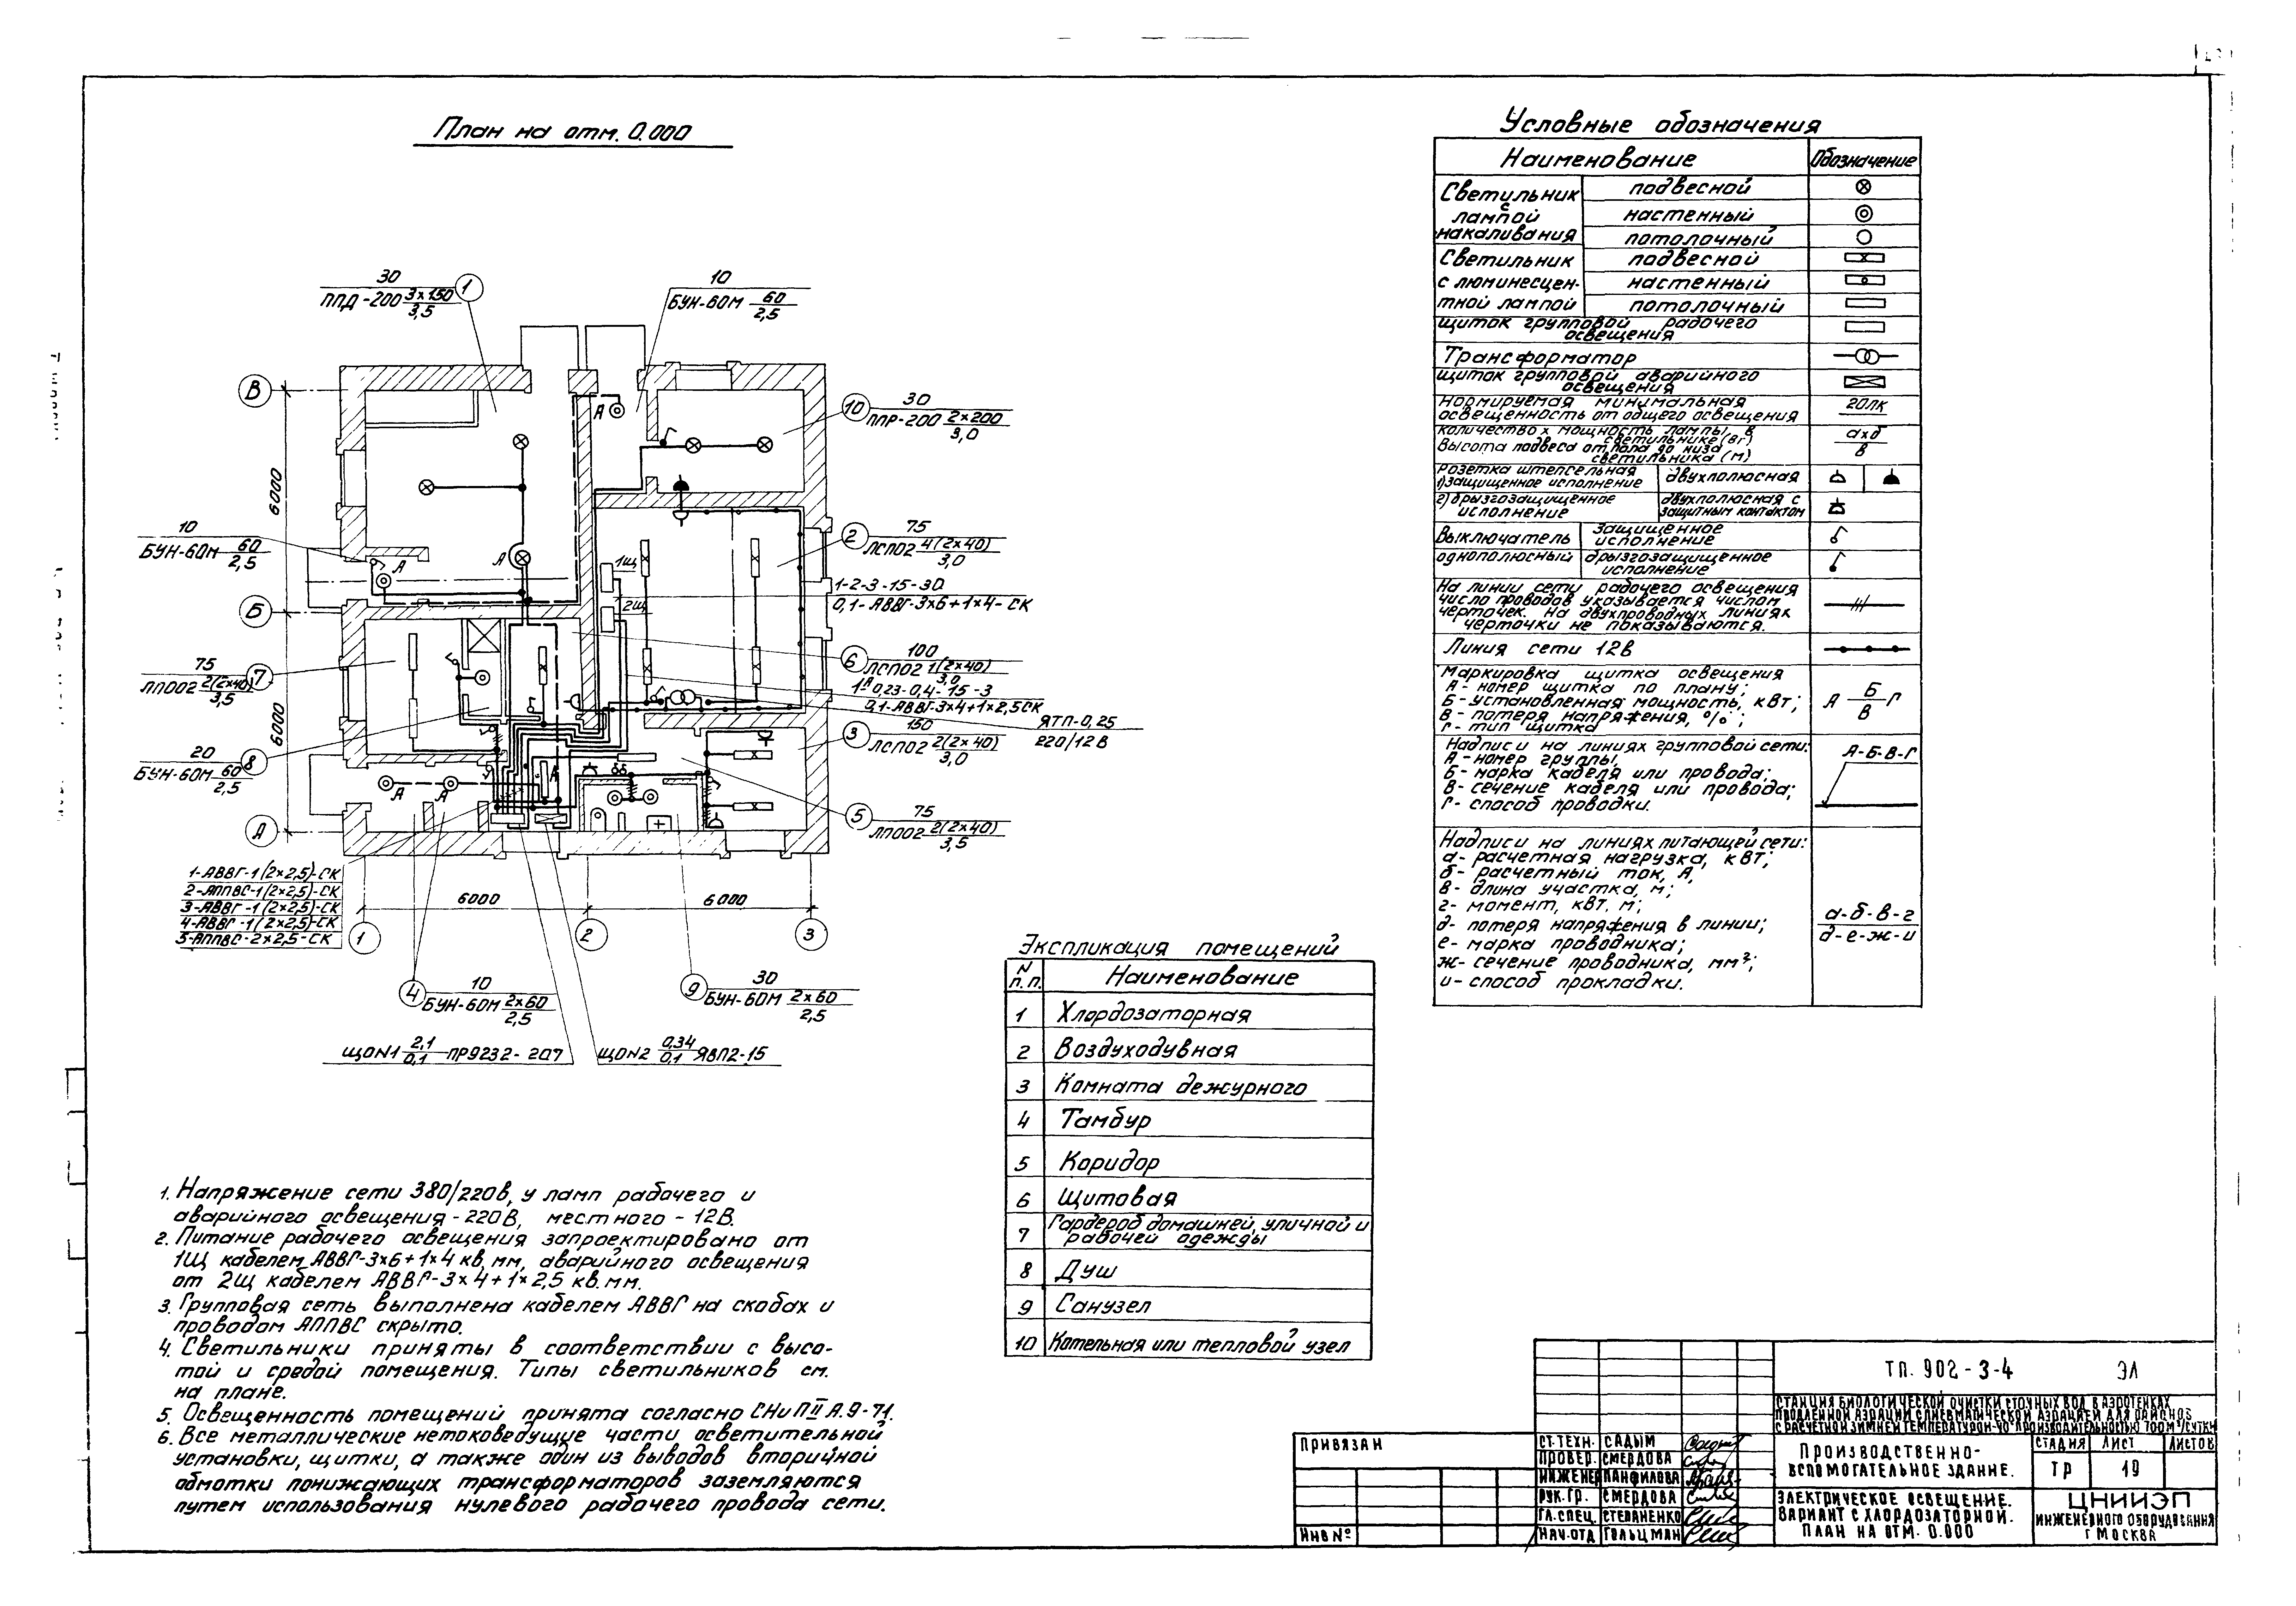 План на отм. 0.000
30
ППД-200 3×150
3,5
1
10
БУН-60М 60
2,5
В
А
10
30
ППР-200 2×200
3,0
6000
10
БУН-60М 60
2,5
А
А
2
75
ЛСП02 4(2×40)
3,0
1Щ
2Щ
1-2-3-15-30
0,1-АВВГ-3×6+1×4-СК
Б
6
100
ЛСП02 1(2×40)
3,0
75
ЛПО02 2(2×40)
3,5
7
1А-0,23-0,4-15-3
0,1-АВВГ-3×4+1×2,5СК
ЯТП-0,25
220/12В
6000
3
150
ЛСП02 2(2×40)
3,0
20
БУН-60М 60
2,5
8
А
А
А
5
75
ЛПО02 2(2×40)
3,5
А
1-АВВГ-1(2×2,5)-СК
2-АППВС-1(2×2,5)-СК
3-АВВГ-1(2×2,5)-СК
4-АВВГ-1(2×2,5)-СК
5-АППВС-2×2,5-СК
6000
6000
1
2
3
4
10
БУН-60М 2×60
2,5
9
30
БУН-60М 2×60
2,5
ЩОN1 2,1
0,1 ПР9232-207
ЩОN2 0,34
0,1 ЯВП2-15
1. Напряжение сети 380/220в, у ламп рабочего и
аварийного освещения-220В, местного-12В.
2. Питание рабочего освещения запроектировано от
1Щ кабелем АВВГ-3×6+1×4 кв.мм, аварийного освещения
от 2Щ кабелем АВВГ-3×4+1×2,5 кв.мм.
3. Групповая сеть выполнена кабелем АВВГ на скобах и
проводом АППВС скрыто.
4. Светильники приняты в соответствии с высо-
той и средой помещения. Типы светильников см.
на плане.
5. Освещенность помещений принята согласно СНиПII А.9-71.
6. Все металлические нетоковедущие части осветительной
установки, щитки, а также один из выводов вторичной
обмотки понижающих трансформаторов заземляются
путем использования нулевого рабочего провода сети.
Экспликация помещений
N
п.п.
Наименование
1 Хлордозаторная
2 Воздуходувная
3 Комната дежурного
4 Тамбур
5 Коридор
6 Щитовая
7 Гардероб домашней, уличной и
рабочей одежды
8 Душ
9 Санузел
10 Котельная или тепловой узел
Условные обозначения
Наименование Обозначение
Светильник
с
лампой
накаливания
подвесной
настенный
потолочный
Светильник
с люминесцен-
тной лампой
подвесной
настенный
потолочный
щиток групповой рабочего
освещения
Трансформатор
щиток групповой аварийного
освещения
Нормируемая минимальная
освещенность от общего освещения
20лк
количество х мощность лампы, в
светильнике (Вт)
Высота подвеса от пола до низа
светильника (м)
ахб
в
розетка штепсельная
1) защищенное исполнение
двухполюсная
2) брызгозащищенное
исполнение
двухполюсная с
защитным контактом
Выключатель
однополюсный
Защищенное
исполнение
брызгозащищенное
исполнение
На линии сети рабочего освещения
число проводов указывается числом
черточек. На двухпроводных линиях
черточки не показываются.
Линия сети 12в
Маркировка щитка освещения
А-номер щитка по плану;
Б-установленная мощность, квт;
В-потеря напряжения, %;
Г-тип щитка
А Б
В Г
Надписи на линиях групповой сети:
А-номер группы,
Б-марка кабеля или провода;
В-сечение кабеля или провода;
Г-способ проводки.
А-Б-В-Г
Надписи на линиях питающей сети:
а-расчетная нагрузка, квт;
б-расчетный ток, А,
в-длина участка, м;
г-момент, квт.м;
д-потеря напряжения в линии;
е-марка проводника;
ж-сечение проводника, мм²;
и-способ прокладки.
а-б-в-г
д-е-ж-и
ТП. 902-3-4 ЭЛ
СТАНЦИЯ БИОЛОГИЧЕСКОЙ ОЧИСТКИ СТОЧНЫХ ВОД В АЭРОТЕНКАХ
ПРОДЛЕННОЙ АЭРАЦИИ С ПНЕВМАТИЧЕСКОЙ АЭРАЦИЕЙ ДЛЯ РАЙОНОВ
С РАСЧЕТНОЙ ЗИМНЕЙ ТЕМПЕРАТУРОЙ-40° ПРОИЗВОДИТЕЛЬНОСТЬЮ 700М³/СУТКИ
ПРИВЯЗАН
ИНВ №
СТ.ТЕХН. САДЫМ
ПРОВЕР. СМЕРДОВА
ИНЖЕНЕР ПАНФИЛОВА
РУК.ГР. СМЕРДОВА
ГЛ.СПЕЦ. СТЕПАНЕНКО
НАЧ.ОТД ГОЛЬЦМАН
ПРОИЗВОДСТВЕННО-
ВСПОМОГАТЕЛЬНОЕ ЗДАНИЕ.
СТАДИЯ ЛИСТ ЛИСТОВ
ТР 19
ЭЛЕКТРИЧЕСКОЕ ОСВЕЩЕНИЕ.
ВАРИАНТ С ХЛОРДОЗАТОРНОЙ.
ПЛАН НА ОТМ. 0.000
ЦНИИЭП
ИНЖЕНЕРНОГО ОБОРУДОВАНИЯ
Г МОСКВА